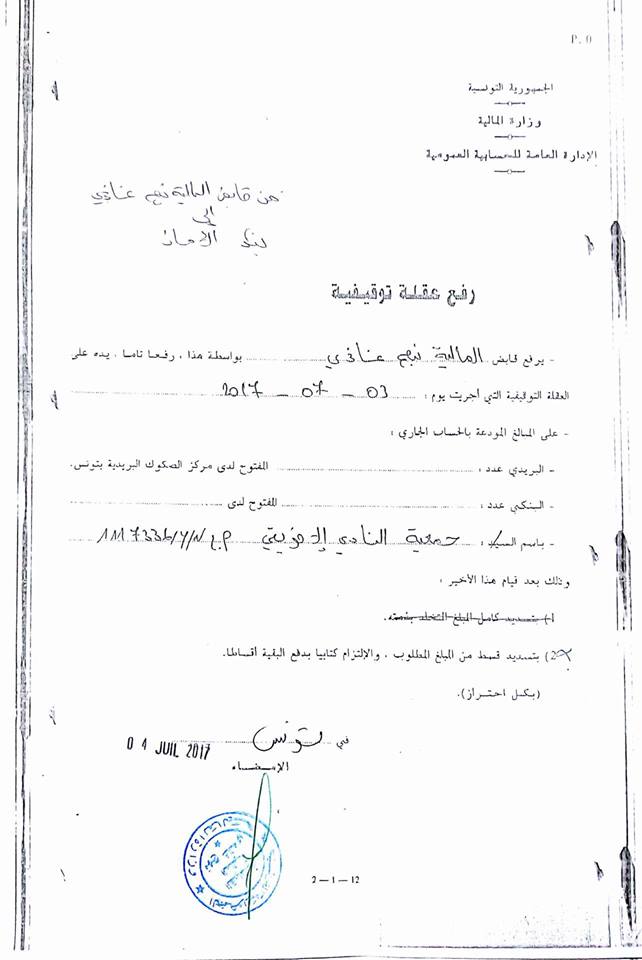 P. 0
الجمهورية التونسية
وزارة المالية
الإدارة العامة للمحاسبة العمومية
من قابض المالية نهج غاندي
إلى
بنك الامان
رفع عقلة توقيفية
- يرفع قابض المالية نهج غاندي بواسطة هذا ، رفعا تاما ، يده على
العقلة التوقيفية التي أجريت يوم : 03 - 07 - 2017
- على المبالغ المودعة بالحساب الجاري :
- البريدي عدد : المفتوح لدى مركز الصكوك البريدية بتونس.
- البنكي عدد : المفتوح لدى
- باسم السيد : جمعية النادي الافريقي م.ج 1117336/Y/N
وذلك بعد قيام هذا الأخير :
1) بتسديد كامل المبلغ المتخلد بذمته.
2) بتسديد قسط من المبلغ المطلوب ، والإلتزام كتابيا بدفع البقية أقساطا.
(بكل احتراز).
في تونس 04 JUIL 2017
الإمضاء
2 — 1 — 12